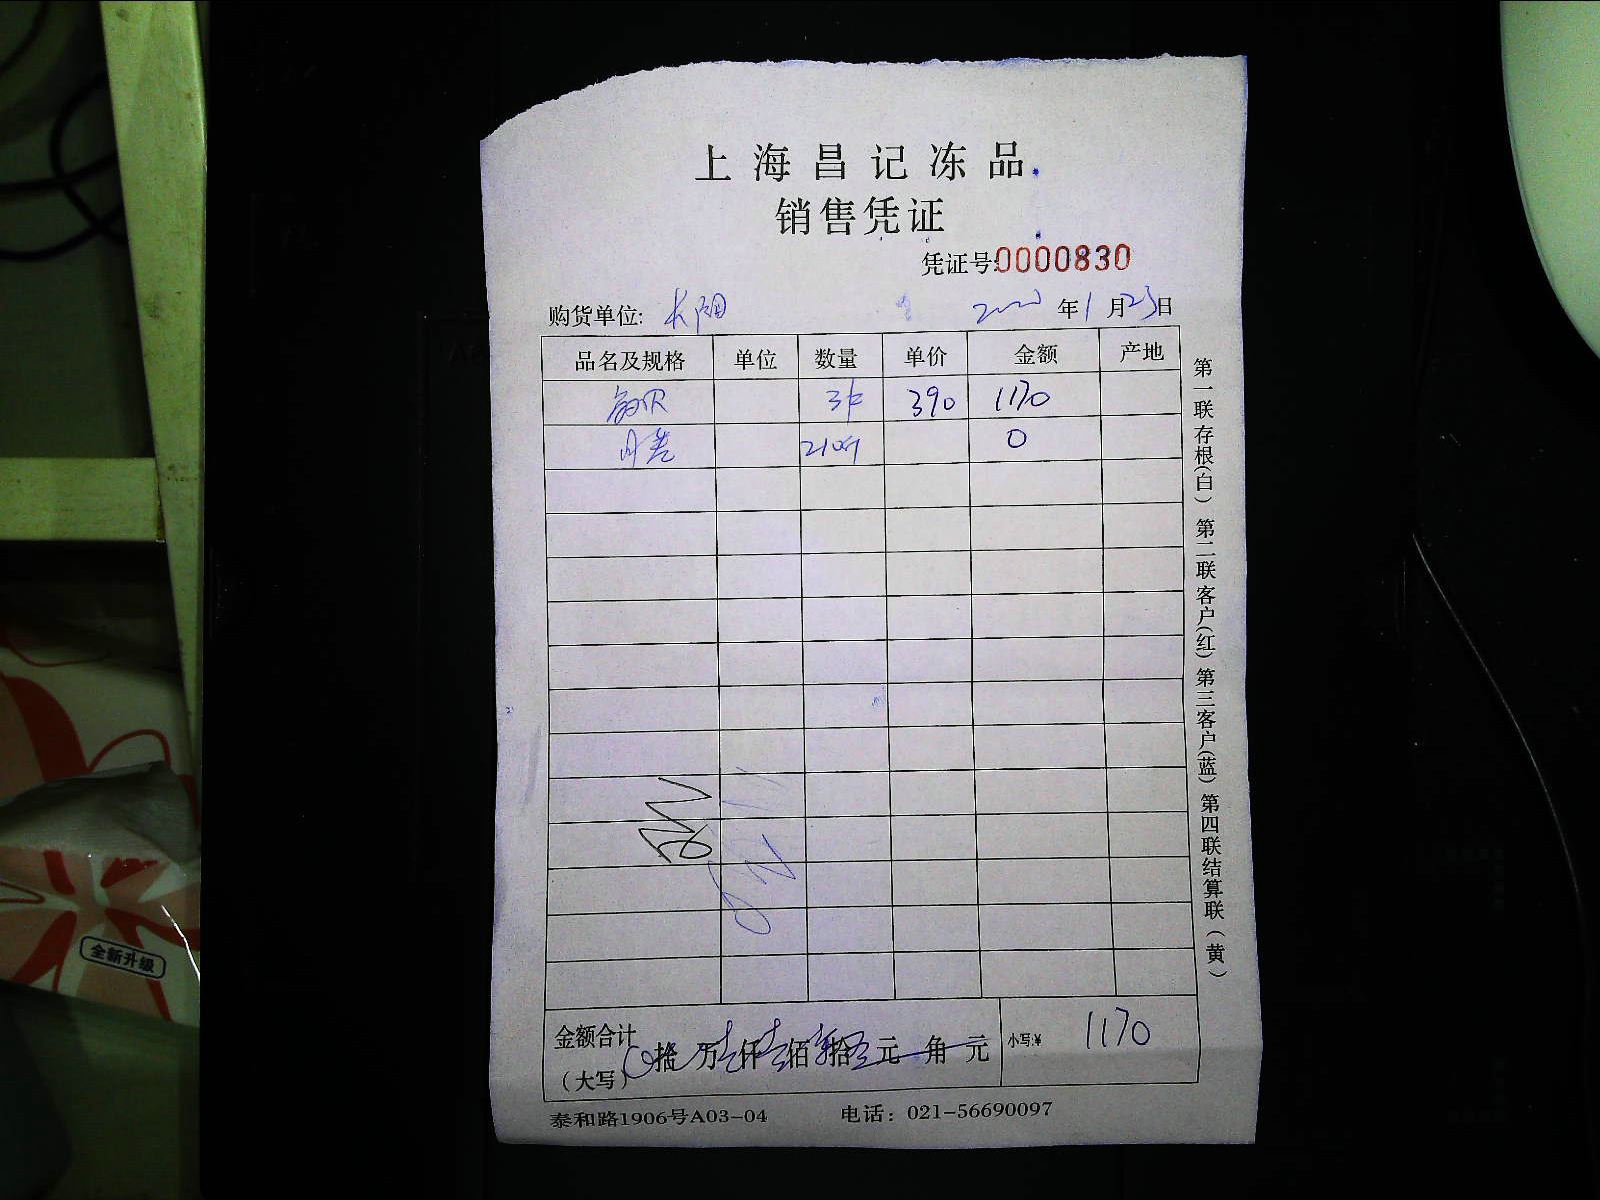 上海昌记冻品
销售凭证
凭证号:0000830
购货单位: 长阳 年1月23日
品名及规格 单位 数量 单价 金额 产地
390 1170
0
金额合计
(大写) 拾 万壹仟壹佰 拾 元 角 元 小写:¥ 1170
泰和路1906号A03-04 电话: 021-56690097
第一联存根(白) 第二联客户(红) 第三客户(蓝) 第四联结算联(黄)
全新升级